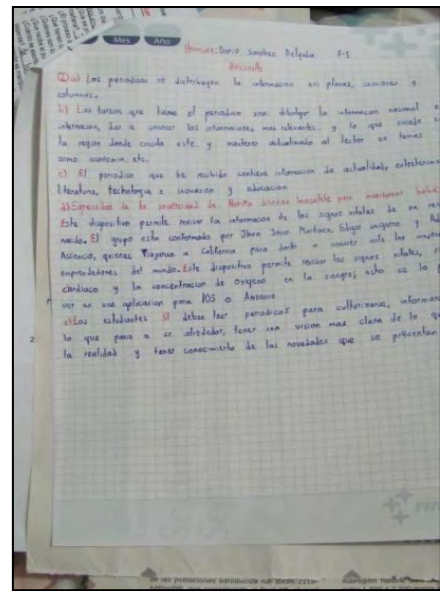 Mes Año
Nombre: Dario Sanchez Delgado 7-3
Desarrollo
① a) Los periodicos se distribuyen la informacion en planas, secciones y
columnas.
b) Las tareas que tiene el periodico son: divulgar la informacion nacional e
internacion, dar a conocer las informaciones mas relevantes, y lo que sucede
la region donde circula este, y mantener actualizado al lector en temas
como economia, etc.
c) El periodico que he recibido contiene informacion de actualidad, entretenim
literatura, technologia e inovacion y educacion
d) Egresados de la universidad de Nariño diseñan brasalete para monitorear bebe
Este dispositivo permite revisar la informacion de los signos vitales de un re
nacido. El grupo esta conformado por Jhon Jairo Martinez, Edgar unigarro y
Ascencio, quienes viajaron a California para darlo a conocer ante los mayores
emprendedores del mundo. Este dispositivo permite revisar los signos vitales, r
cardiaco y la concentracion de oxigeno en la sangre, esto se lo p
ver en una aplicacion para IOS o Android
e) Los estudiantes SI deben leer periodicos para culturizarse, informar
lo que pasa a su alrededor, tener una vision mas clara de lo qu
la realidad y tener conocimiento de las novedades que se presentan
2